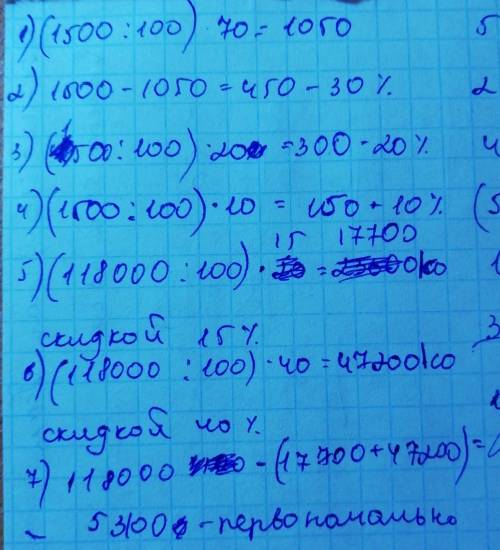 1) (1500 : 100) · 70 = 1050
2) 1500 - 1050 = 450 - 30 %
3) (1500 : 100) · 20 = 300 - 20 %
4) (1500 : 100) · 10 = 150 - 10 %
5) (118000 : 100) · 15 = 17700 со
скидкой 15 %
6) (118000 : 100) · 40 = 47200 со
скидкой 40 %.
7) 118000 - (17700 + 47200) =
53100 - первоначально
5
2
4
(5
1
3